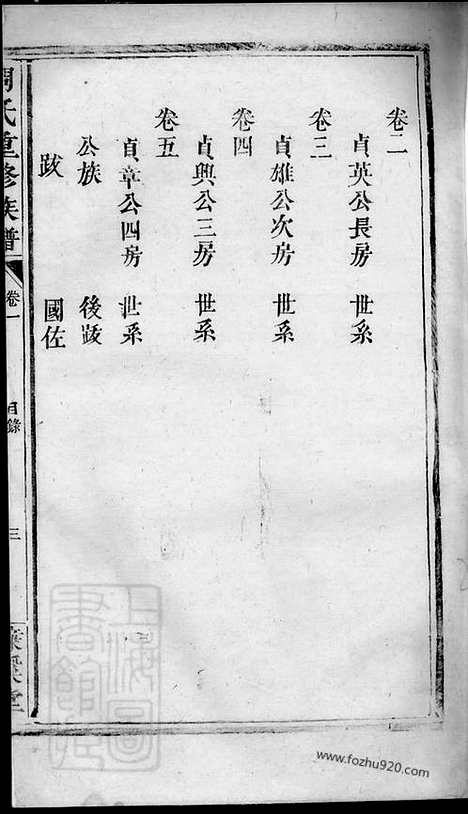 卷二
貞英公長房 世系
卷三
貞雄公次房 世系
卷四
貞興公三房 世系
卷五
貞章公四房 世系
公族 後跋
跋 國佐
周氏重修族譜 卷一 目錄 三
上海圖書館藏
www.fozhu920.com